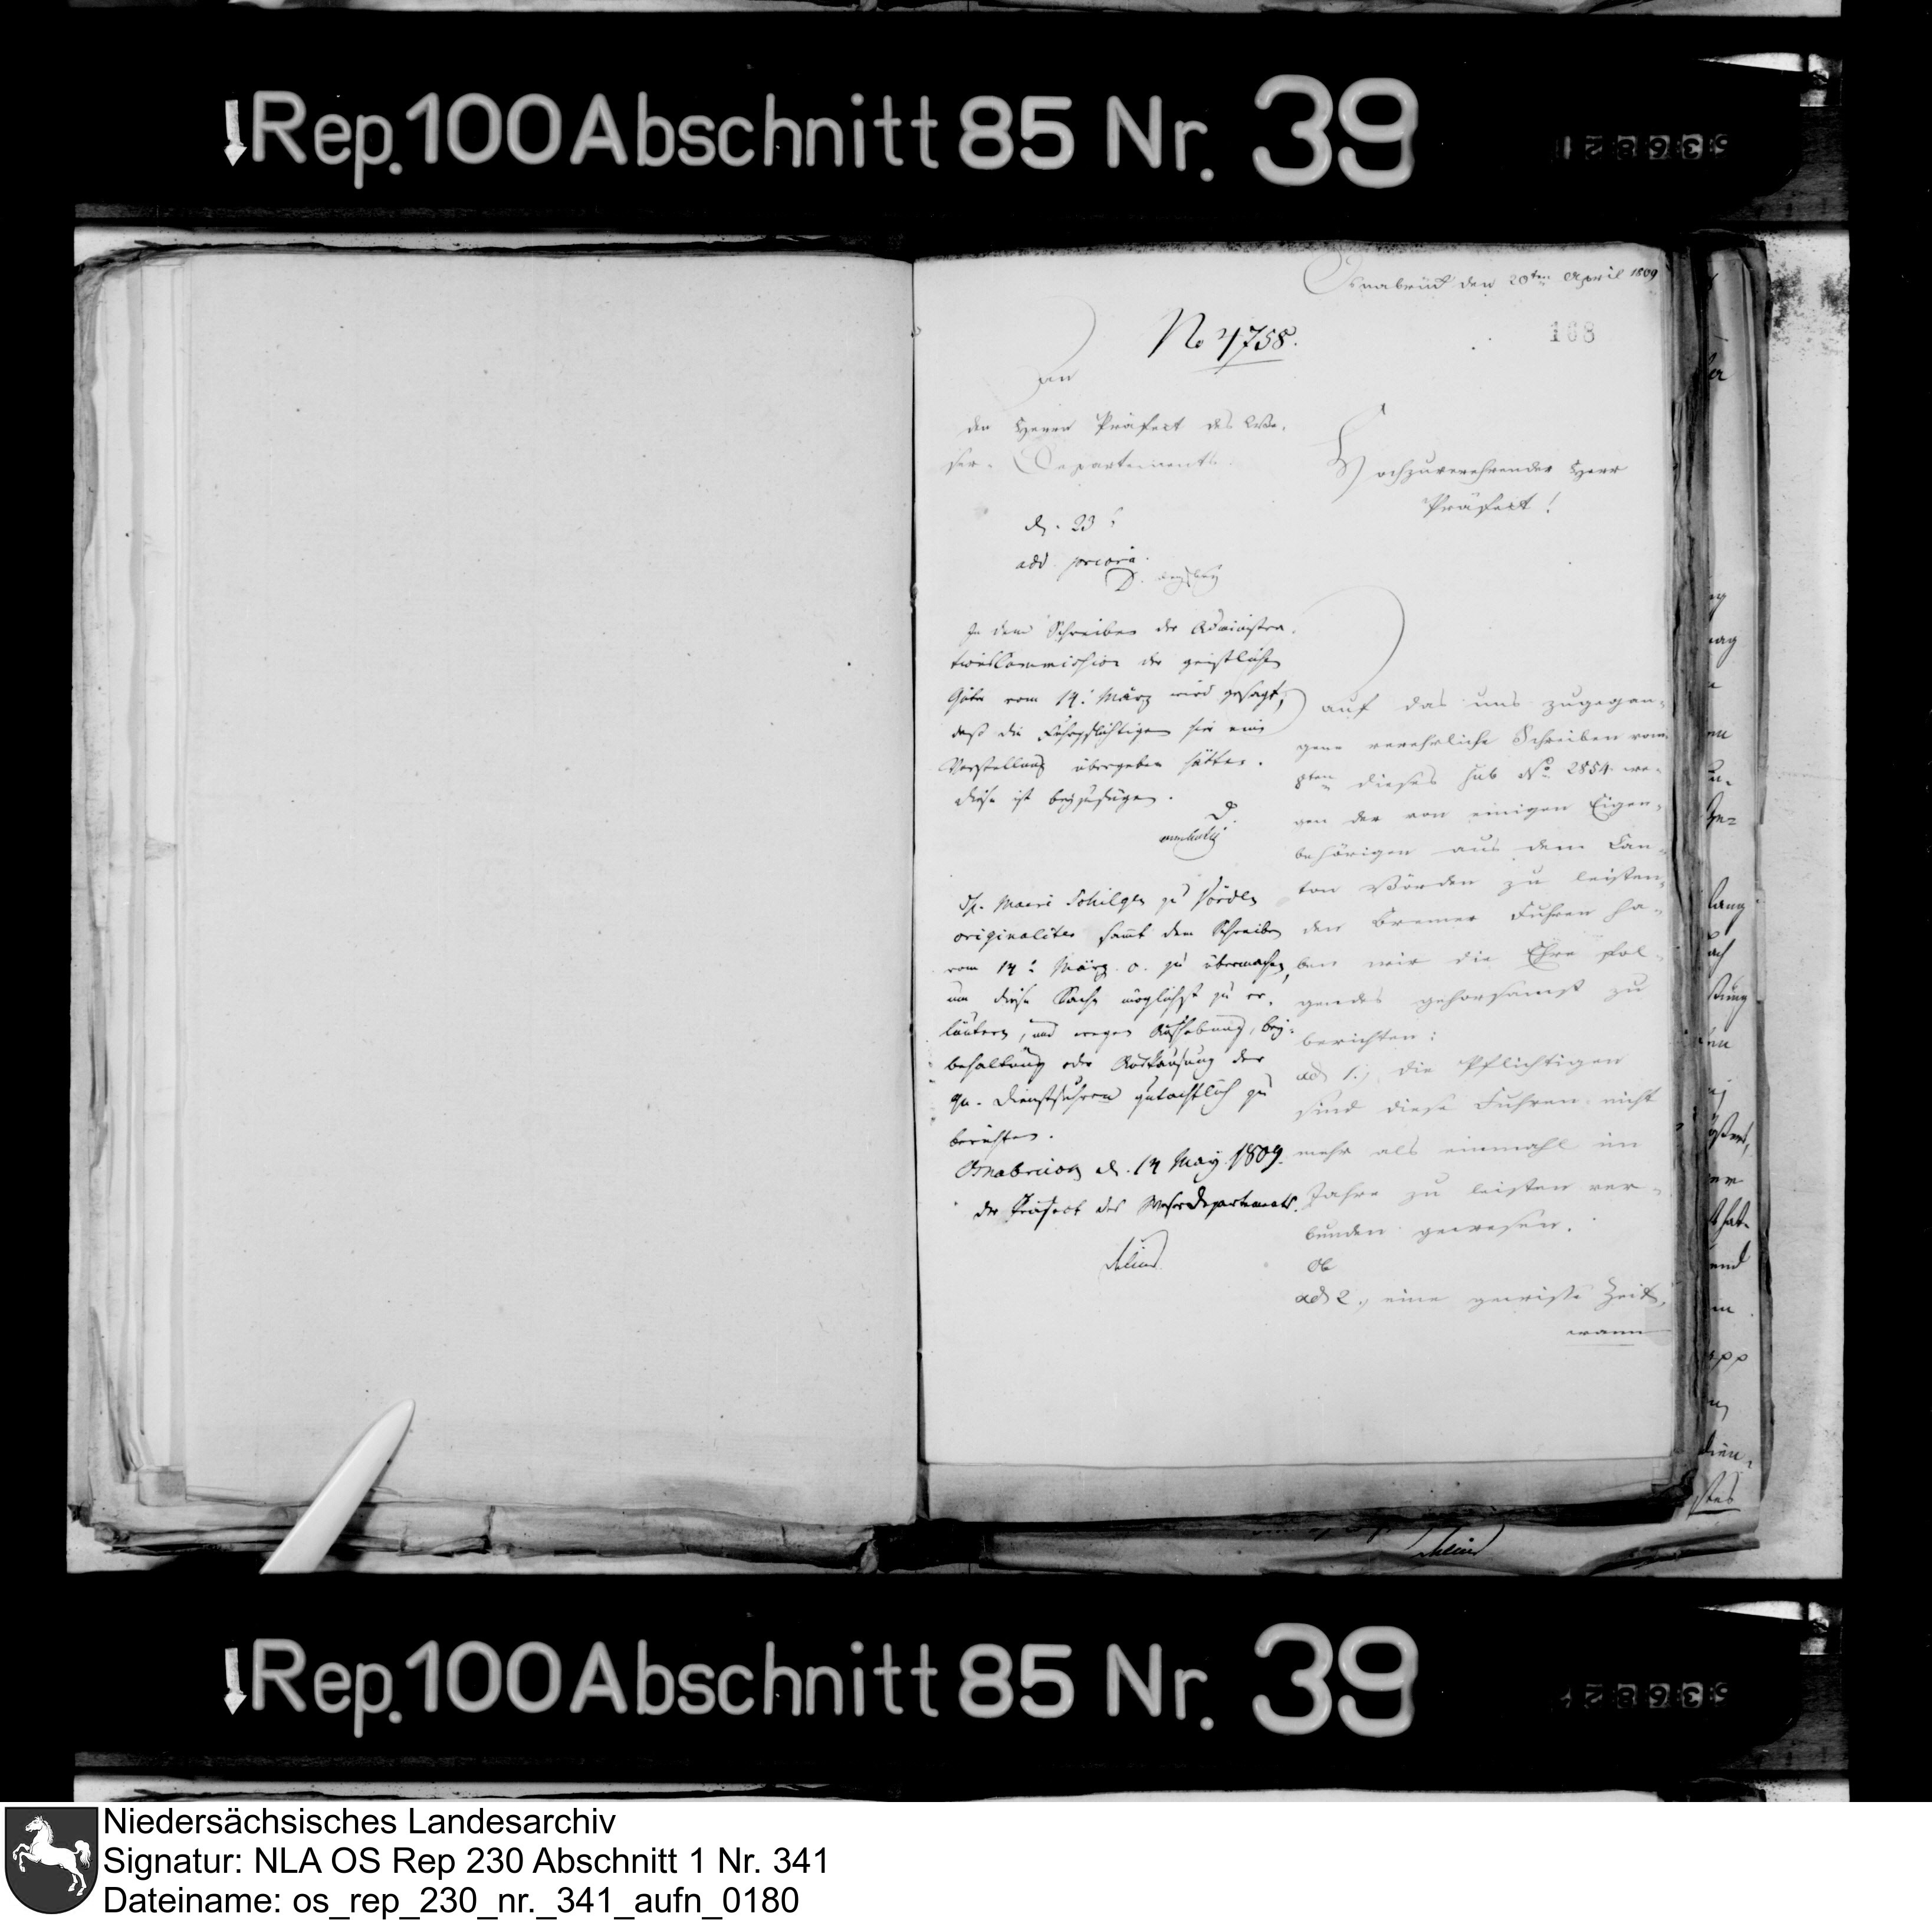 Rep. 100 Abschnitt 85 Nr. 39
Osnabrück den 20ten April 1809
No 4758.
168
An
den Herrn Präfect des We-
ser-Departements.
Hochzuverehrender Herr
Präfect!
d. 23
add. priora.
D.
In dem Schreiben der Administra-
tions Commission der geistlichen
Güter vom 14. März wird gesagt,
daß die Fuhrpflichtigen hie eine
Vorstellung übergeben hätten.
diese ist beyzufügen.
D.
H. Maire Schilgen zu Vörden
originaliter sammt dem Schreiben
vom 14 März a. zu übermachen,
um diese Sache möglichst zu er-
läutern, und wegen Aufhebung, bey-
behaltung oder Auskaufung der
qu. Dienstfuhren gutachtlich zu
berichten.
Osnabrück d. 14 May 1809.
der Präfect des Weser Departements.
Delius
auf das uns zugegan-
gene verehrliche Schreiben vom
8ten dieses sub No 2854. we-
gen der von einigen Eigen-
behörigen aus dem Can-
ton Vörden zu leisten-
den Bremer Fuhren ha-
ben wir die Ehre fol-
gendes gehorsamst zu
berichten:
ad 1., die Pflichtigen
sind diese Fuhren nicht
mehr als einmahl im
Jahre zu leisten ver-
bunden gewesen.
Ob
ad 2., eine gewisse Zeit,
wann
Delius
Rep. 100 Abschnitt 85 Nr. 39
Niedersächsisches Landesarchiv
Signatur: NLA OS Rep 230 Abschnitt 1 Nr. 341
Dateiname: os_rep_230_nr._341_aufn_0180